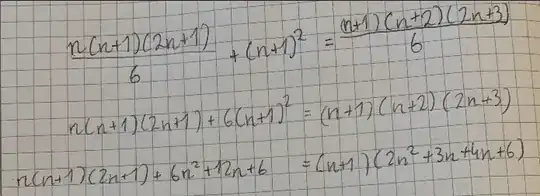 n(n+1)(2n+1)/6 + (n+1)² = (n+1)(n+2)(2n+3)/6
n(n+1)(2n+1) + 6(n+1)² = (n+1)(n+2)(2n+3)
n(n+1)(2n+1) + 6n² + 12n + 6 = (n+1)(2n² + 3n + 4n + 6)